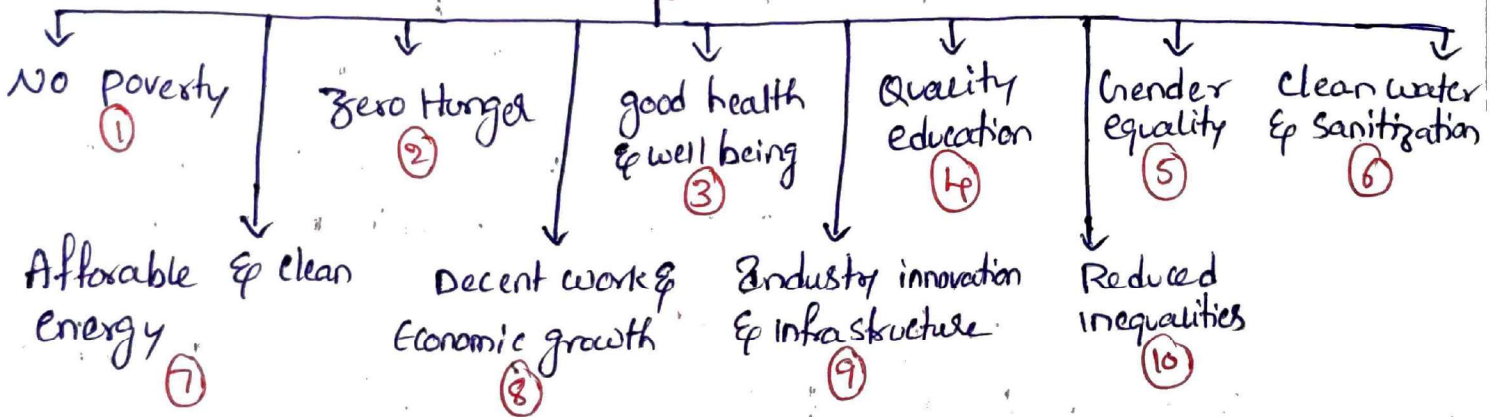 No poverty
①
Zero Hunger
②
good health
& well being
③
Quality
education
④
Gender
equality
⑤
clean water
& Sanitization
⑥
Afforable & clean
energy
⑦
Decent work &
Economic growth
⑧
Industry innovation
& infrastructure
⑨
Reduced
inequalities
⑩